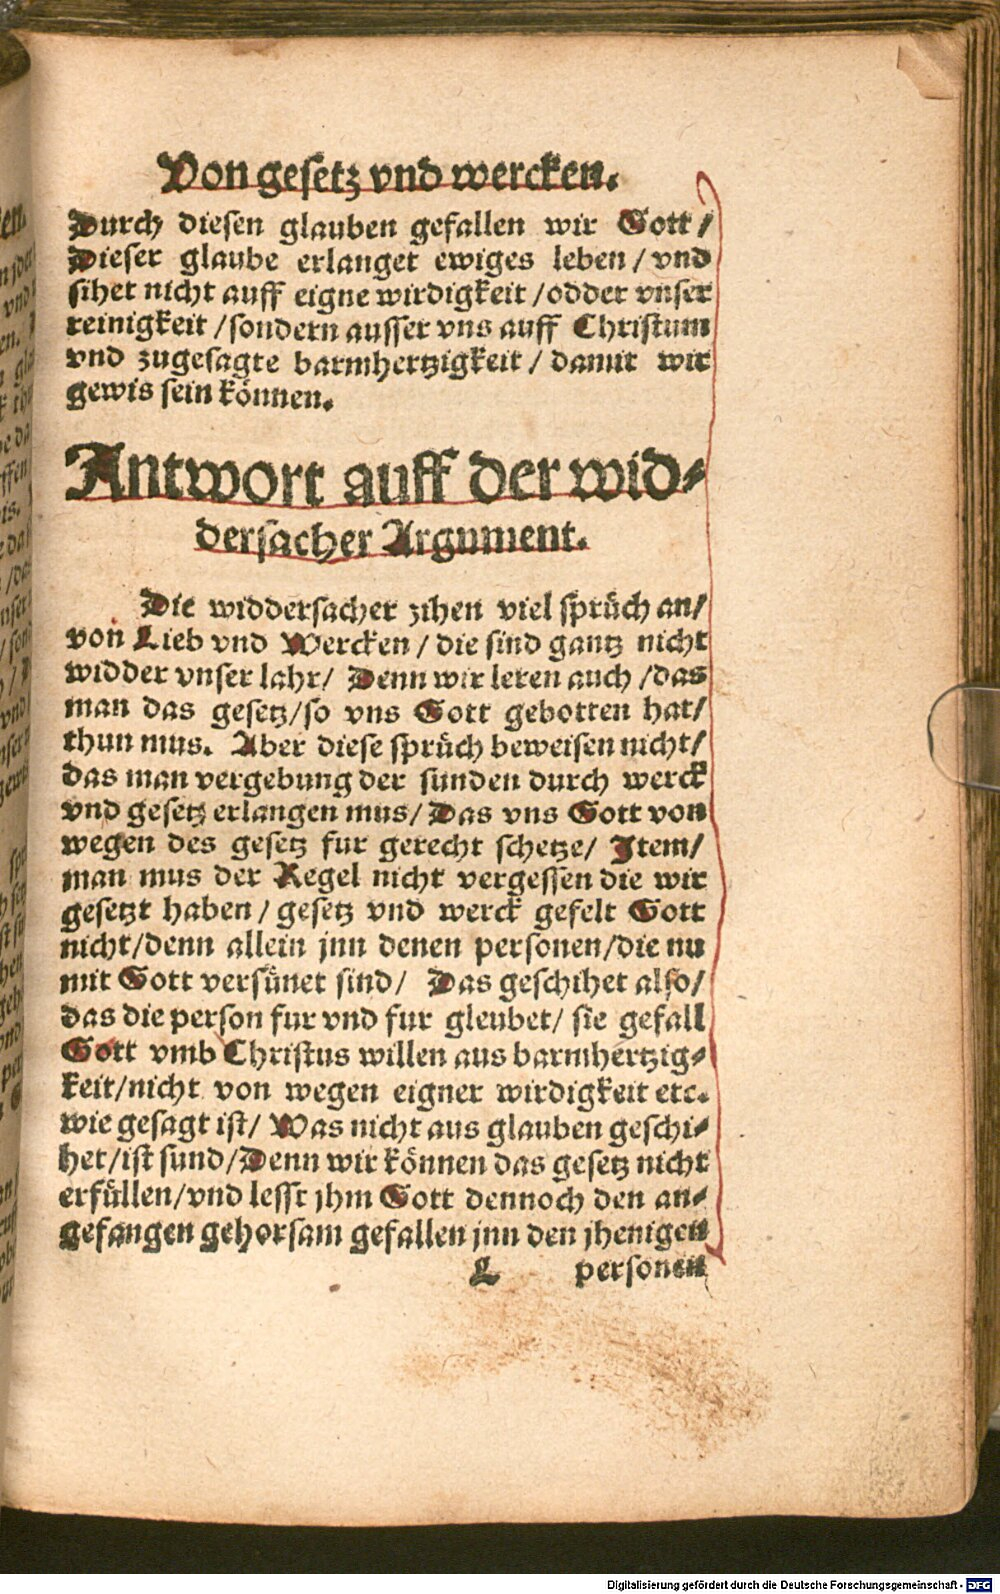 Von gesetz vnd wercken.
Durch diesen glauben gefallen wir Gott/
Dieser glaube erlanget ewiges leben/vnd
sihet nicht auff eigne wirdigkeit/odder vnser
reinigkeit/sondern ausser vns auff Christum
vnd zugesagte barmhertzigkeit/damit wir
gewis sein können.
Antwort auff der wid-
dersacher Argument.
Die widdersacher zihen viel sprüch an/
von Lieb vnd Wercken/die sind gantz nicht
widder vnser lahr/ Denn wir leren auch/das
man das gesetz/so vns Gott gebotten hat/
thun mus. Aber diese sprüch beweisen nicht/
das man vergebung der sunden durch werck
vnd gesetz erlangen mus/Das vns Gott von
wegen des gesetz fur gerecht schetze/ Item/
man mus der Regel nicht vergessen die wir
gesetzt haben/gesetz vnd werck gefelt Gott
nicht/denn allein jnn denen personen/die nu
mit Gott versünet sind/ Das geschihet also/
das die person fur vnd fur gleubet/ sie gefall
Gott vmb Christus willen aus barmhertzig-
keit/nicht von wegen eigner wirdigkeit etc.
wie gesagt ist/ Was nicht aus glauben geschi-
het/ist sund/Denn wir können das gesetz nicht
erfüllen/vnd lesst jhm Gott dennoch den an-
gefangen gehorsam gefallen jnn den jhenigen
L personen
Digitalisierung gefördert durch die Deutsche Forschungsgemeinschaft - DFG